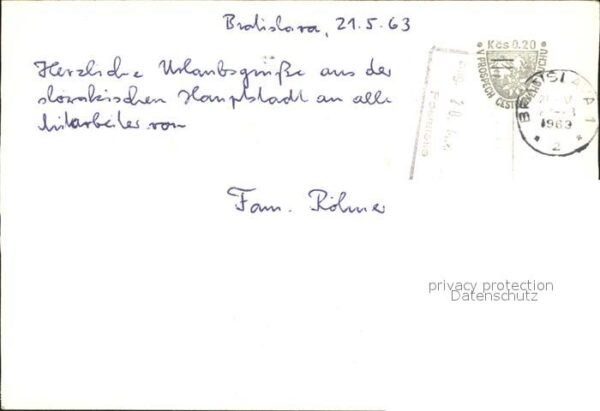 Bratislava, 21.5.63
Herzliche Urlaubsgrüße aus der
slovakischen Hauptstadt an alle
Mitarbeiter von
Fam. Röhner
Kčs 0.20
V PROSPECH CEST
BRATISLAVA 1
1963
2
privacy protection
Datenschutz